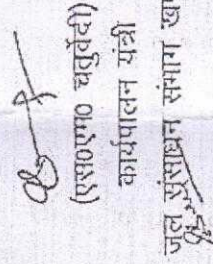 (एस०एम० चतुर्वेदी)
कार्यपालन यंत्री
जल संसाधन संभाग